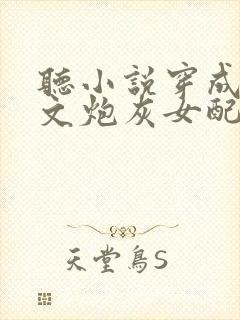 聽小說穿成
文炮灰女配
天堂鳥S